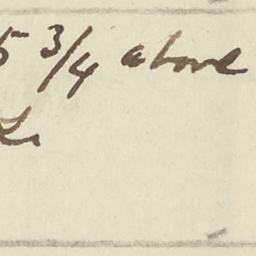 5 3/4 above